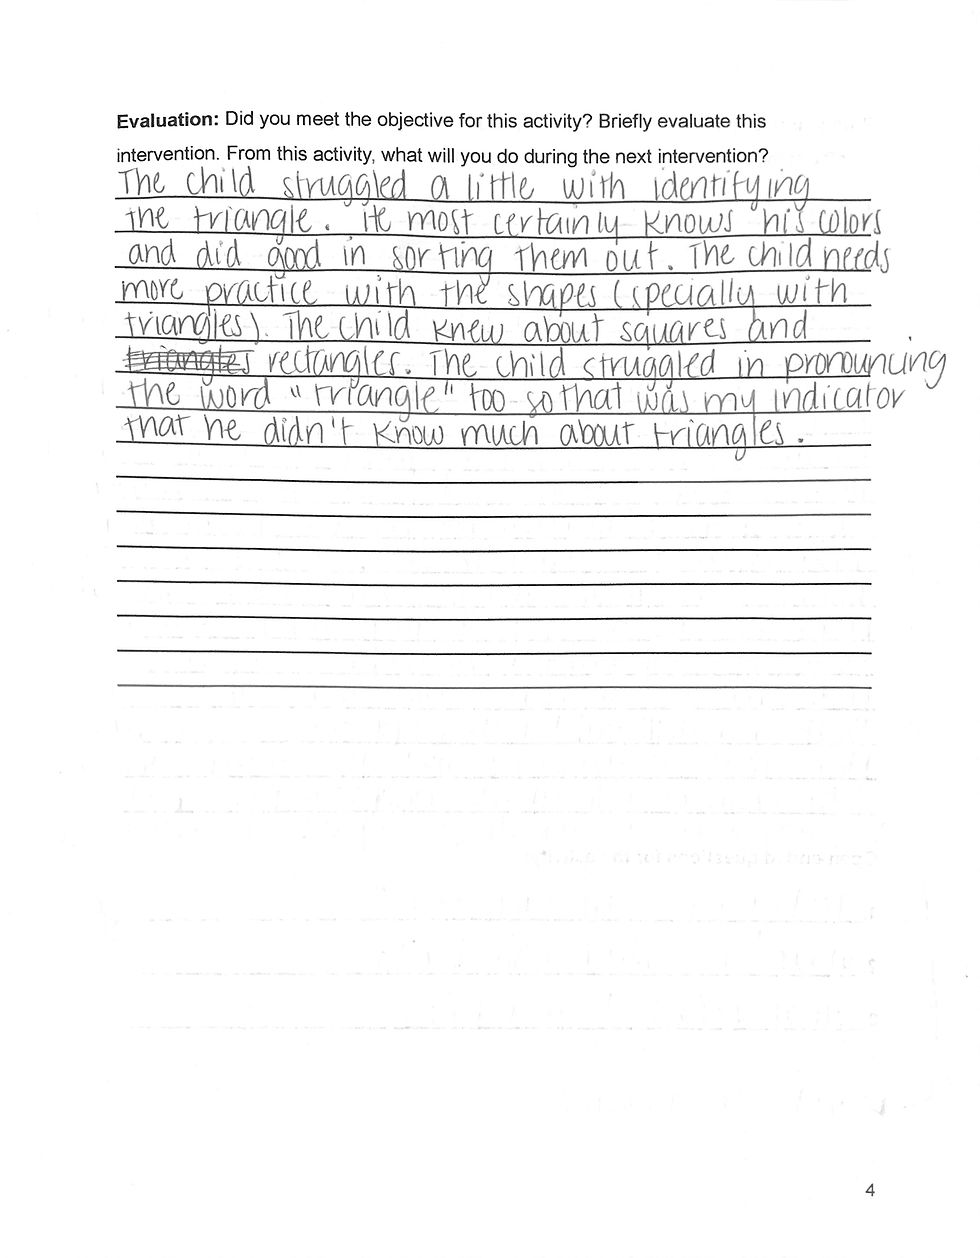 Evaluation: Did you meet the objective for this activity? Briefly evaluate this
intervention. From this activity, what will you do during the next intervention?
The child struggled a little with identifying
the triangle. He most certainly knows his colors
and did good in sorting them out. The child needs
more practice with the shapes (specially with
triangles). The child knew about squares and
triangles rectangles. The child struggled in pronouncing
the word "triangle" too so that was my indicator
that he didn't know much about triangles.
4